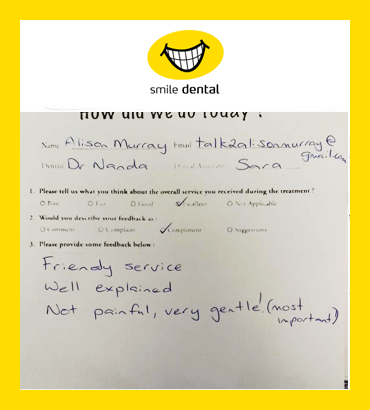 smile dental
How did we do Today ?
Name Alison Murray Email talk2alisonmurray@
gmail.com
Dentist Dr Nanda Dental Assistant Sara
1. Please tell us what you think about the overall service you received during the treatment ?
Poor Fair Good Excellent Not Applicable
2. Would you describe your feedback as :
Comment Complaint Compliment Suggestion
3. Please provide some feedback below :
Friendly service
Well explained
Not painful, very gentle! (most
important)